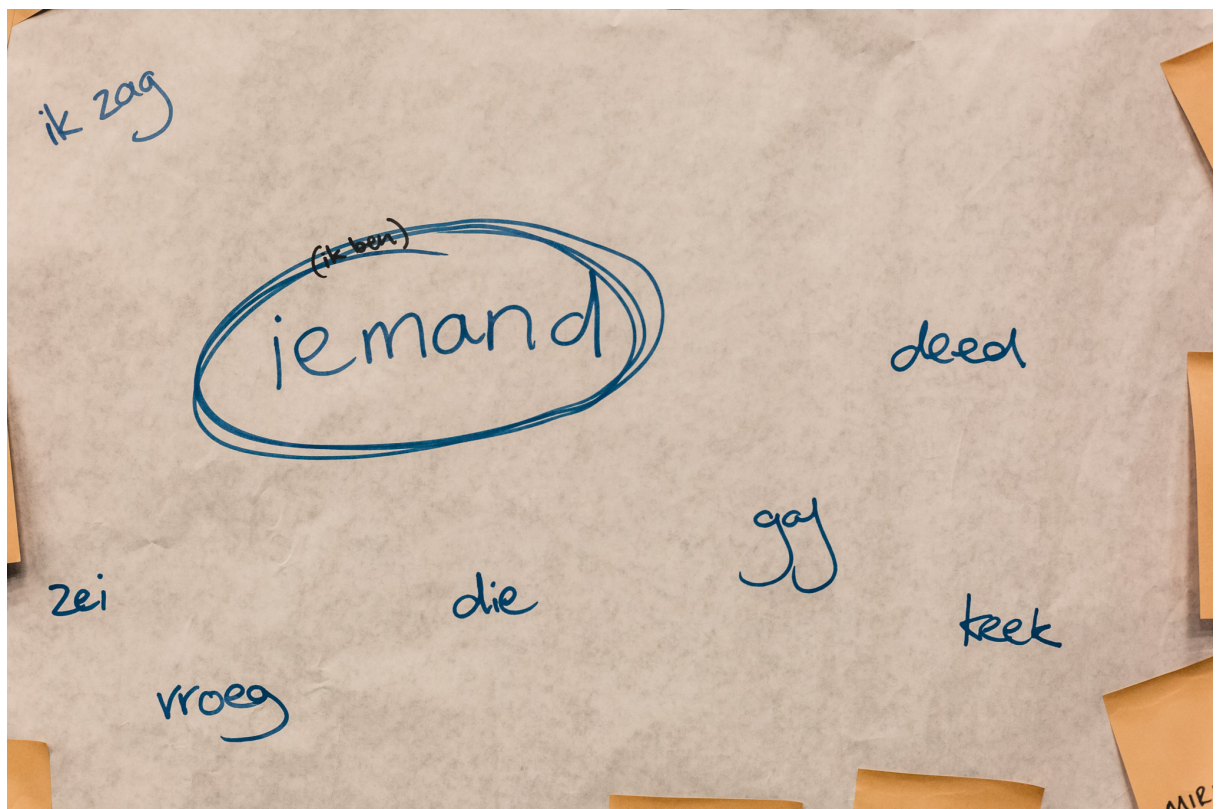 ik zag
(ik ben)
iemand
deed
gaf
zei
die
keek
vroeg
MIR